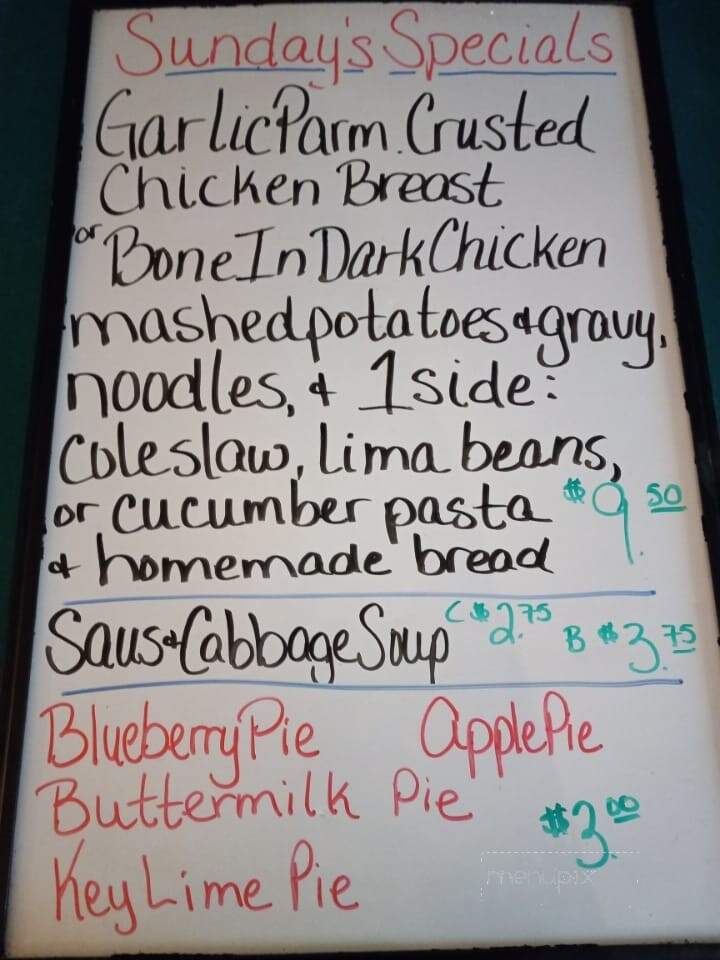 Sunday's Specials
Garlic Parm. Crusted
Chicken Breast
or Bone In Dark Chicken
mashed potatoes & gravy,
noodles, & 1 side:
coleslaw, lima beans,
or cucumber pasta $9.50
& homemade bread
Saus & Cabbage Soup C $2.75 B $3.75
Blueberry Pie Apple Pie
Buttermilk Pie $3.00
Key Lime Pie
menupix